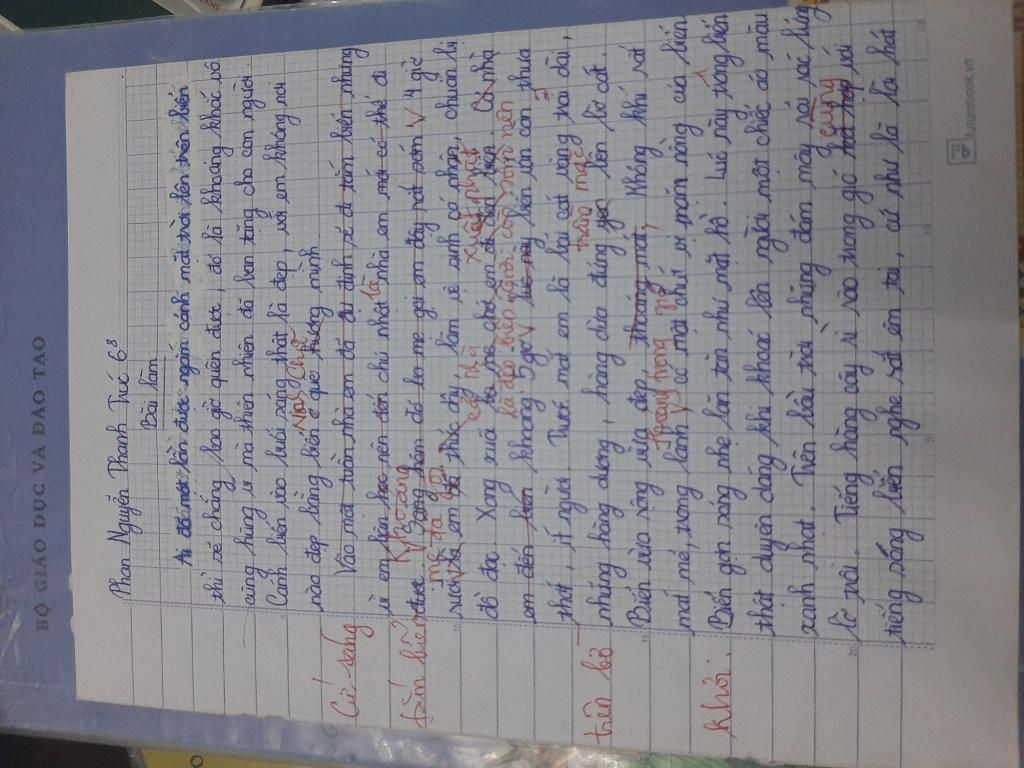 BỘ GIÁO DỤC VÀ ĐÀO TẠO
Phan Nguyễn Thanh Trúc 6⁸
Bài làm
Ai đã một lần được ngắm cảnh mặt trời lên trên biển
thì sẽ chẳng bao giờ quên được, đó là khoảng khắc vô
cùng hùng vĩ mà thiên nhiên đã ban tặng cho con người.
Cảnh biển vào buổi sáng thật là đẹp, với em không nơi
nào đẹp bằng biển ở quê hương mình
Vào một tuần nhà em đã dự định sẽ đi tắm biển nhưng
vì em bận học nên đến chủ nhật là nhà em mới có thể đi
được. Sáng hôm đó ba mẹ gọi em dậy rất sớm 4 giờ
rưỡi em đã thức dậy làm vệ sinh cá nhân, chuẩn bị
đồ đạc. Xong xuôi ba mẹ chở em đi đến biển. Cả nhà
em đến biển khoảng 5 giờ lúc này biển vẫn còn thưa
thớt, ít người. Trước mắt em là bãi cát vàng trải dài,
những hàng dương, hàng dừa đứng yên bên bờ cát.
Biển vừa rộng vừa đẹp, thoáng mát, không khí rất
mát mẻ, trong lành có một chút vị mặn nồng của biển.
Biển gợn sóng nhẹ lăn tăn như mặt hồ. Lúc này trông biển
thật duyên dáng khi khoác lên người một chiếc áo màu
xanh nhạt. Trên bầu trời những đám mây rải rác lững
lờ trôi. Tiếng hàng cây rì rào trong gió rất hợp với
tiếng sóng biển nghe rất êm tai, cứ như là lời hát
Cứ sáng
trên bờ
khởi.
khoảng
mẹ đã gọi
cả nhà
xuất phát
thẳng mặc
trong
cùng
futurebook.vn